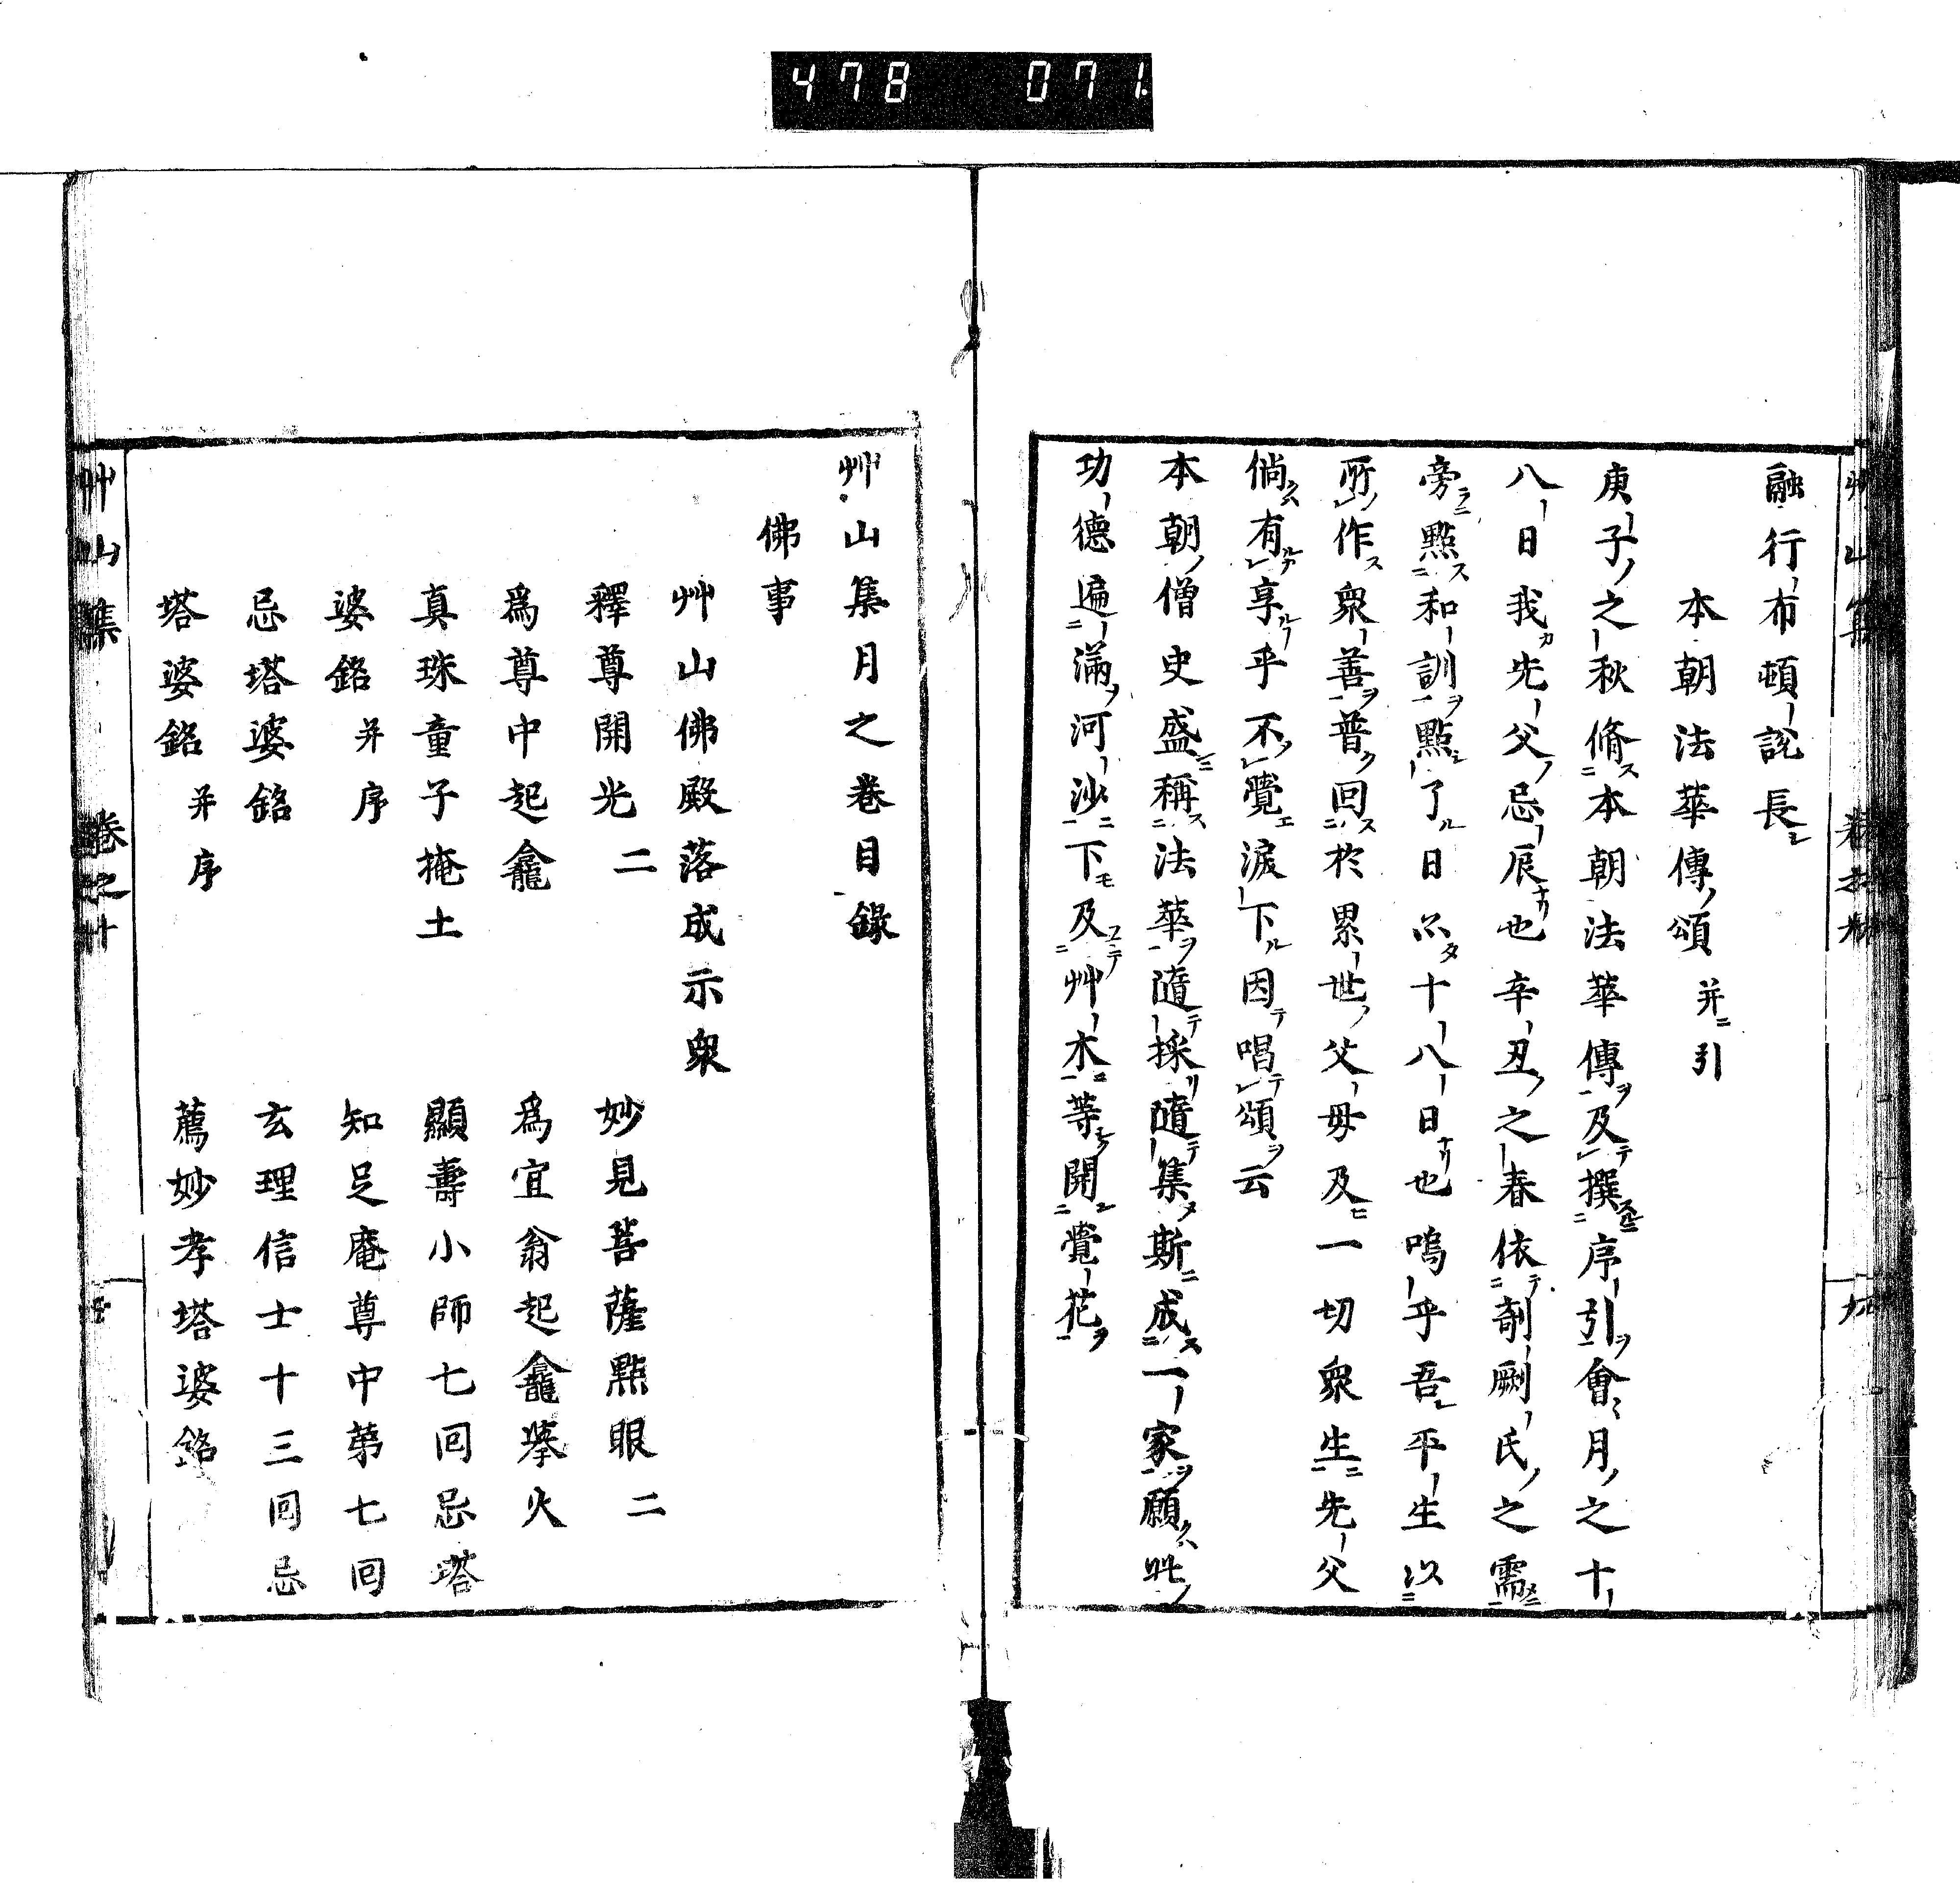 478 071
融行布頓說長
本朝法華傳頌 并引
庚子之秋脩本朝法華傳及撰序引會月之十
八日我先父忌辰也辛丑之春依剞劂氏之需
旁點和訓點了日亦十八日也嗚乎吾平生以
所作衆善普回於累世父母及一切衆生先父
倘有享乎不覺淚下因唱頌云
本朝僧史盛稱法華隨採隨集斯成一家願此
功德遍滿河沙下及艸木等開覺花
艸山集月之卷目錄
佛事
艸山佛殿落成示衆
釋尊開光 二 妙見菩薩點眼 二
爲尊中起龕 爲宜翁起龕擧火
真珠童子掩土 顯壽小師七回忌塔
婆銘 并序 知足庵尊中第七回
忌塔婆銘 玄理信士十三回忌
塔婆銘 并序 薦妙孝塔婆銘
艸山集 卷之十